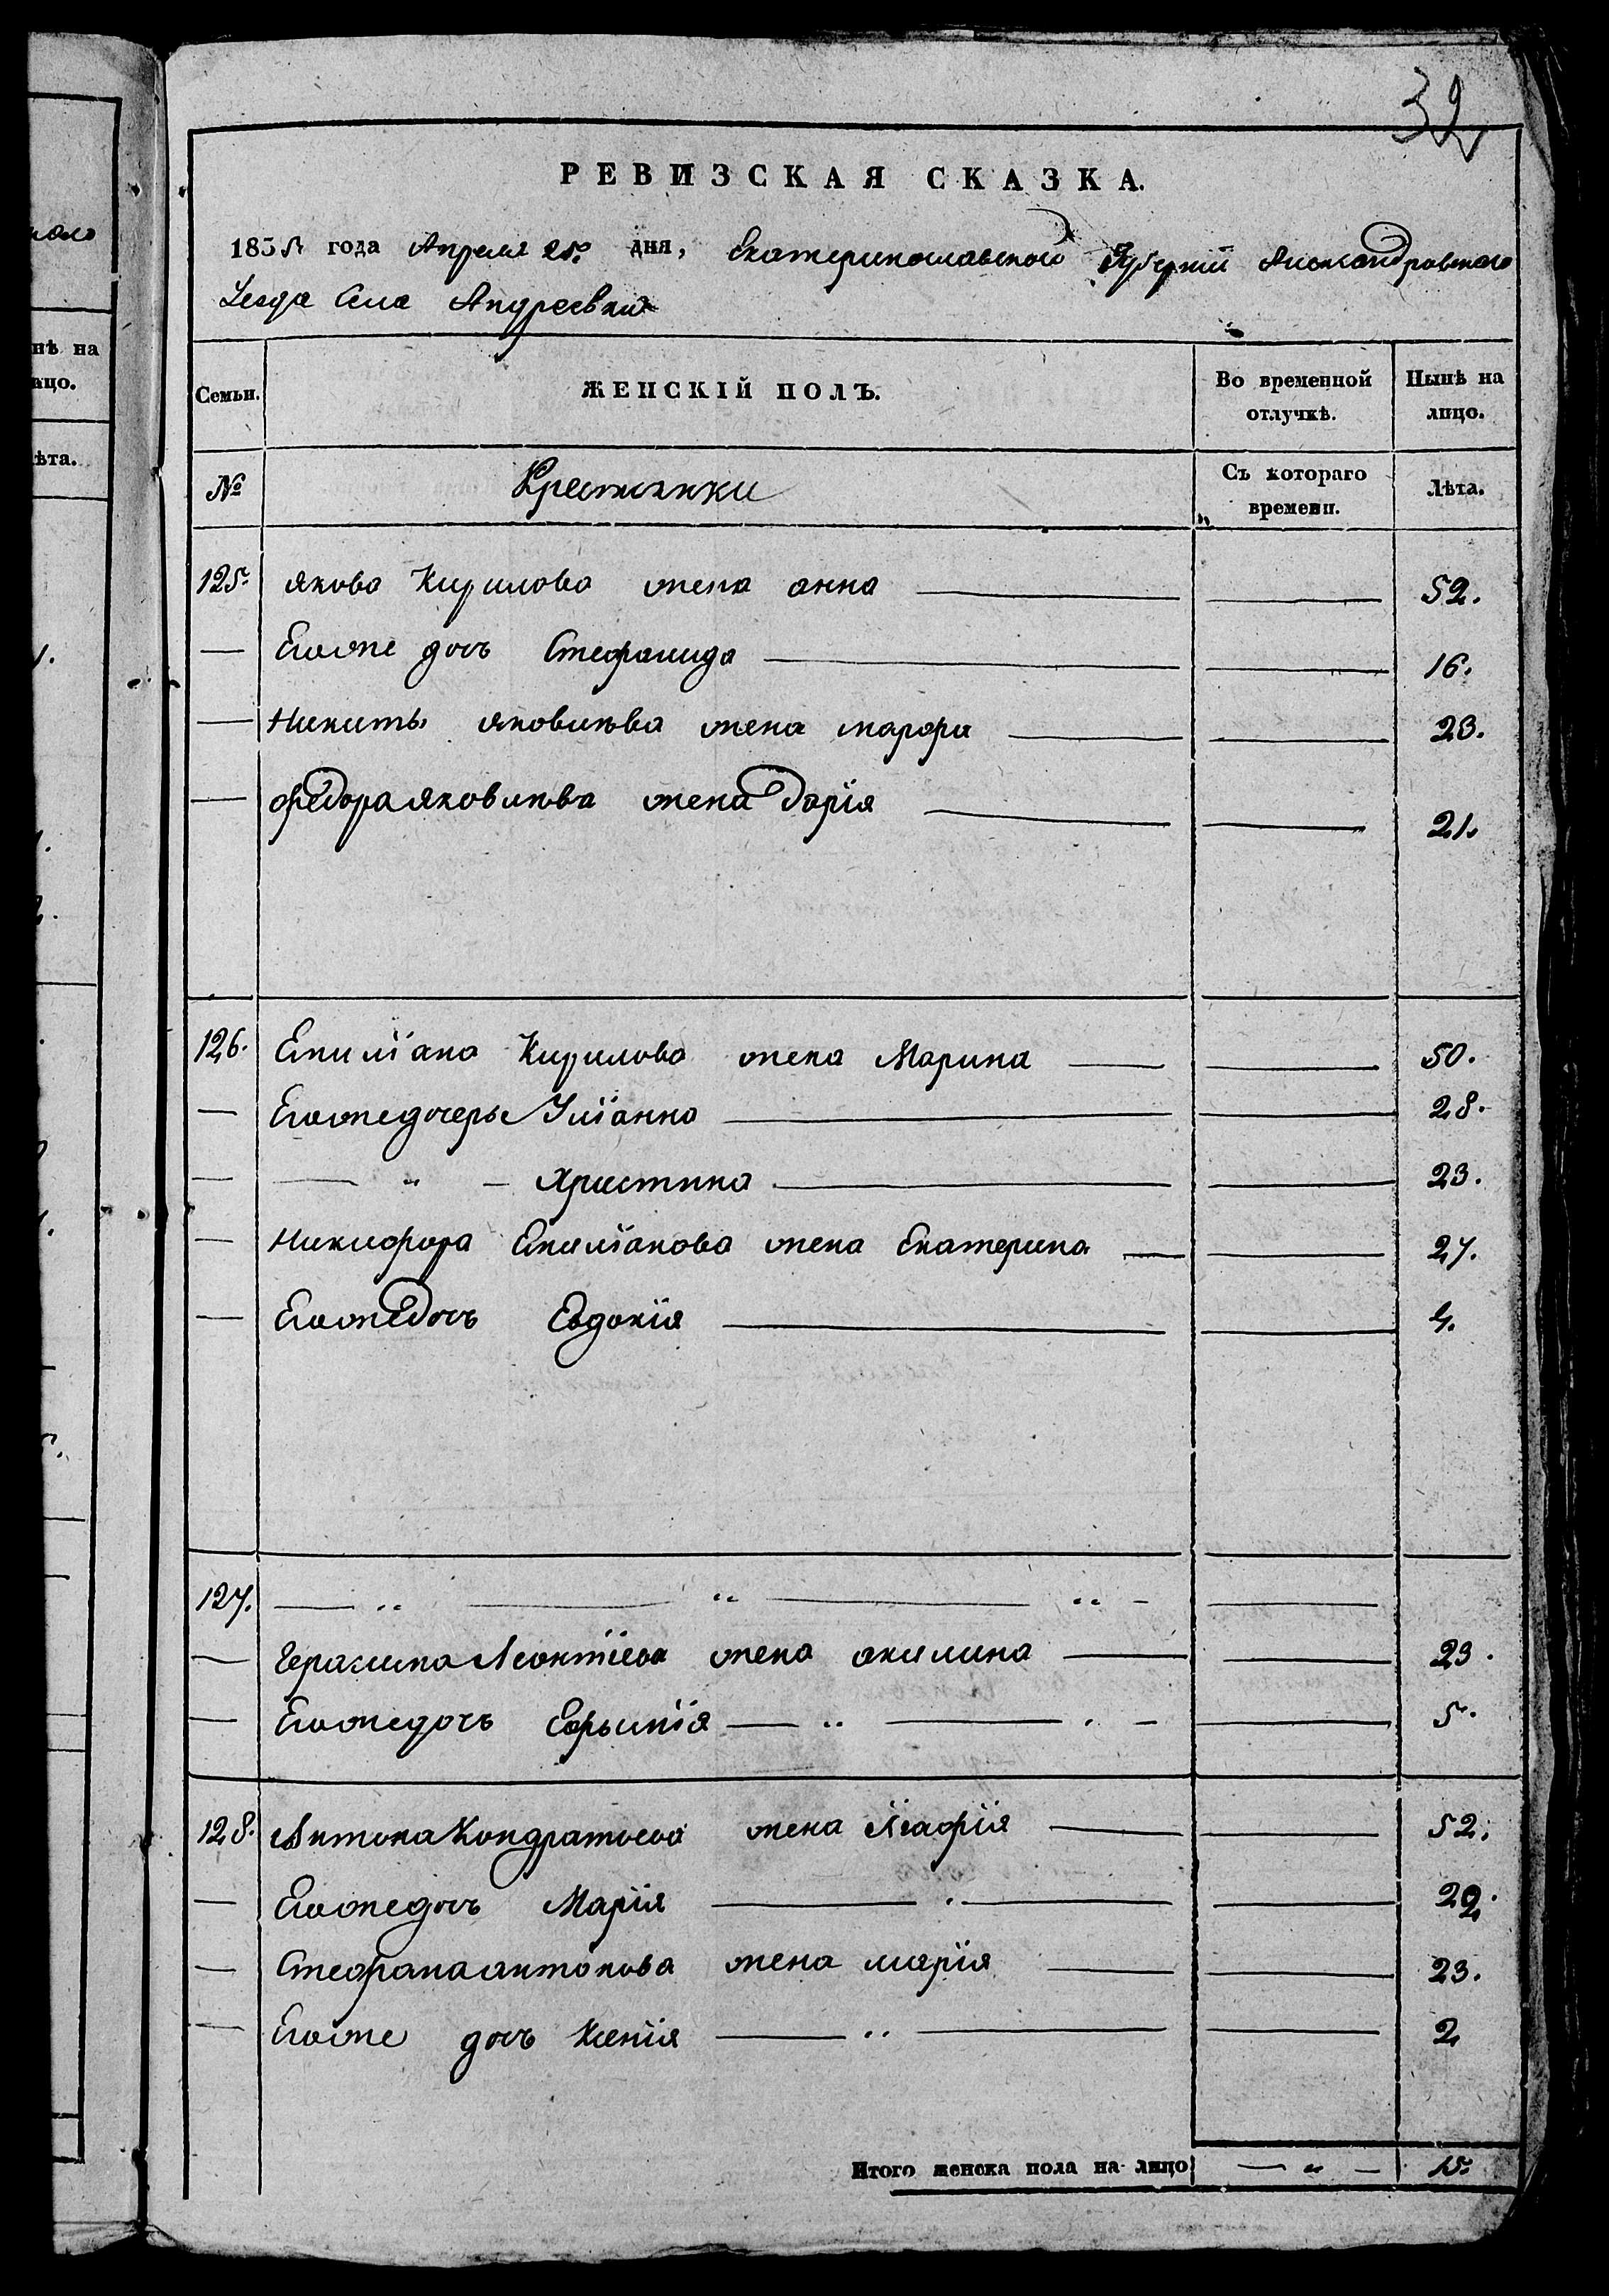 32
РЕВИЗСКАЯ СКАЗКА.
1835 года Апреля 25. дня, Екатеринославской Губернии Александровскаго
Уезда Села Андреевки
Семьи. ЖЕНСКІЙ ПОЛЪ. Во временной отлучкѣ. Нынѣ на лицо.
№ Крестьянки Съ котораго времени. Лѣта.
125. якова Кирилова жена анна 52.
— Егоже дочь Стефанида 16.
— Никиты яковлѣва жена марфа 23.
— федора яковлѣва жена дарія 21.
126. Емиліана Кирилова жена Марина 50.
— Егоже дочеры Уліанна 28.
— — „ — Христина 23.
— Никифора Емиліанова жена Екатерина 27.
— Егоже дочь Евдокія 4.
127. — „ — „ — „ —
— Герасима Леонтіева жена акилина 23.
— Егоже дочь Ефымія — „ — „ — 5.
128. Антона Кондратьева жена Агафія 52.
— Егоже дочь Марія 22.
— Стефана антонова жена марія 23.
— Егоже дочь Ксенія — „ — 2
Итого женска пола на-лицо — „ — 15.
нѣ на
лцо.
ѣта.